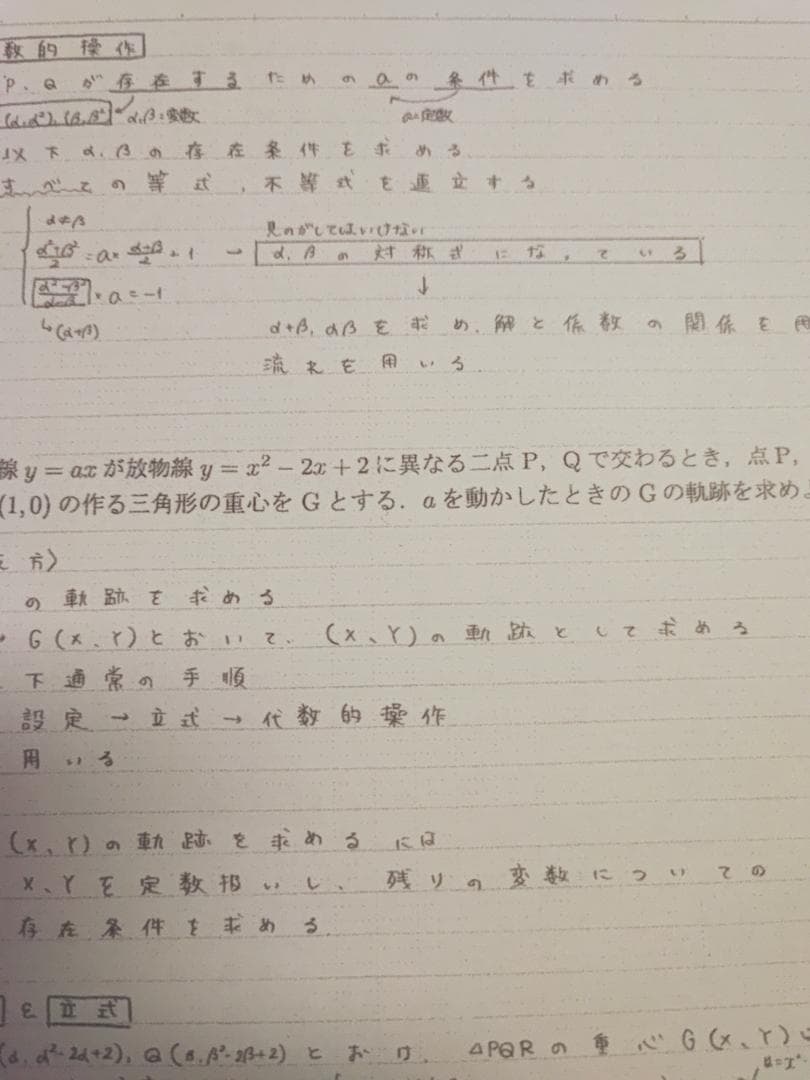 数的操作
P、Qが存在するためのaの条件を求める
(α,α²),(β,β²) α,β=変数 a=定数
以下α,βの存在条件を求める
すべての等式,不等式を連立する
α≠β
見のがしてはいけない
(α²+β²)/2 = a × (α+β)/2 + 1 → α,βの対称式になっている
↓
(α²-β²)/(α-β) × a = -1
↳(α+β) α+β, αβを求め、解と係数の関係を用
流れを用いる
線 y = ax が放物線 y = x² − 2x + 2 に異なる二点 P，Q で交わるとき，点 P，
(1,0) の作る三角形の重心を G とする．a を動かしたときの G の軌跡を求めよ
え方〉
の軌跡を求める
G(X、Y)とおいて、(X、Y)の軌跡として求める
下通常の手順
設定→立式→代数的操作
用いる
(X、Y)の軌跡を求めるには
X、Yを定数扱いし、残りの変数についての
存在条件を求める
と 立式
(α,α²-2α+2), Q(β,β²-2β+2)とおけ、△PQRの重心G(X、Y)